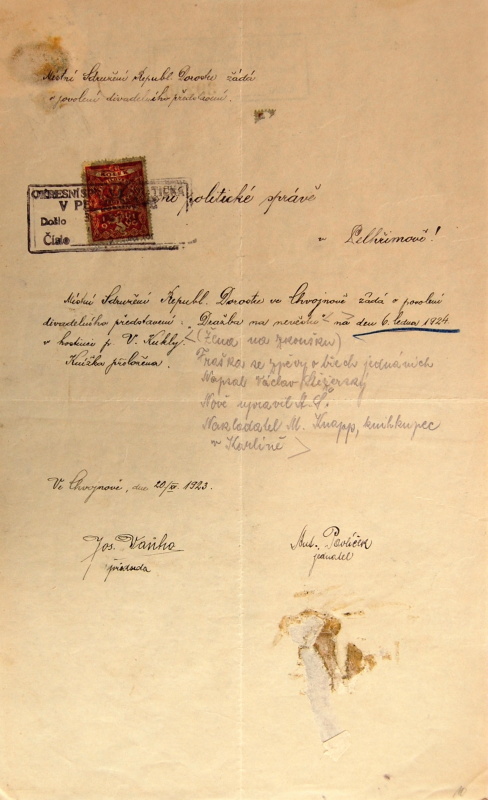 Místní Sdružení Republ. Dorostu žádá
o povolení divadelního představení.
V
Došlo
Číslo
politické správě
v Pelhřimově!
Místní Sdružení Republ. Dorostu ve Chvojnově žádá o povolení
divadelního představení: „Dražba na nevěstu" na den 6. ledna 1924
v hostinci p. V. Kukly.
Knížka přiložena.
(Žena na zkoušku)
Fraška se zpěvy o třech jednáních
Napsal Václav
Nově upravil A. Š.
Nakladatel M. Knapp, knihkupec
v Karlíně
Ve Chvojnově, dne 20/XI 1923.
Jos. Vaňha
předseda
Ant. Pavlíček
jednatel